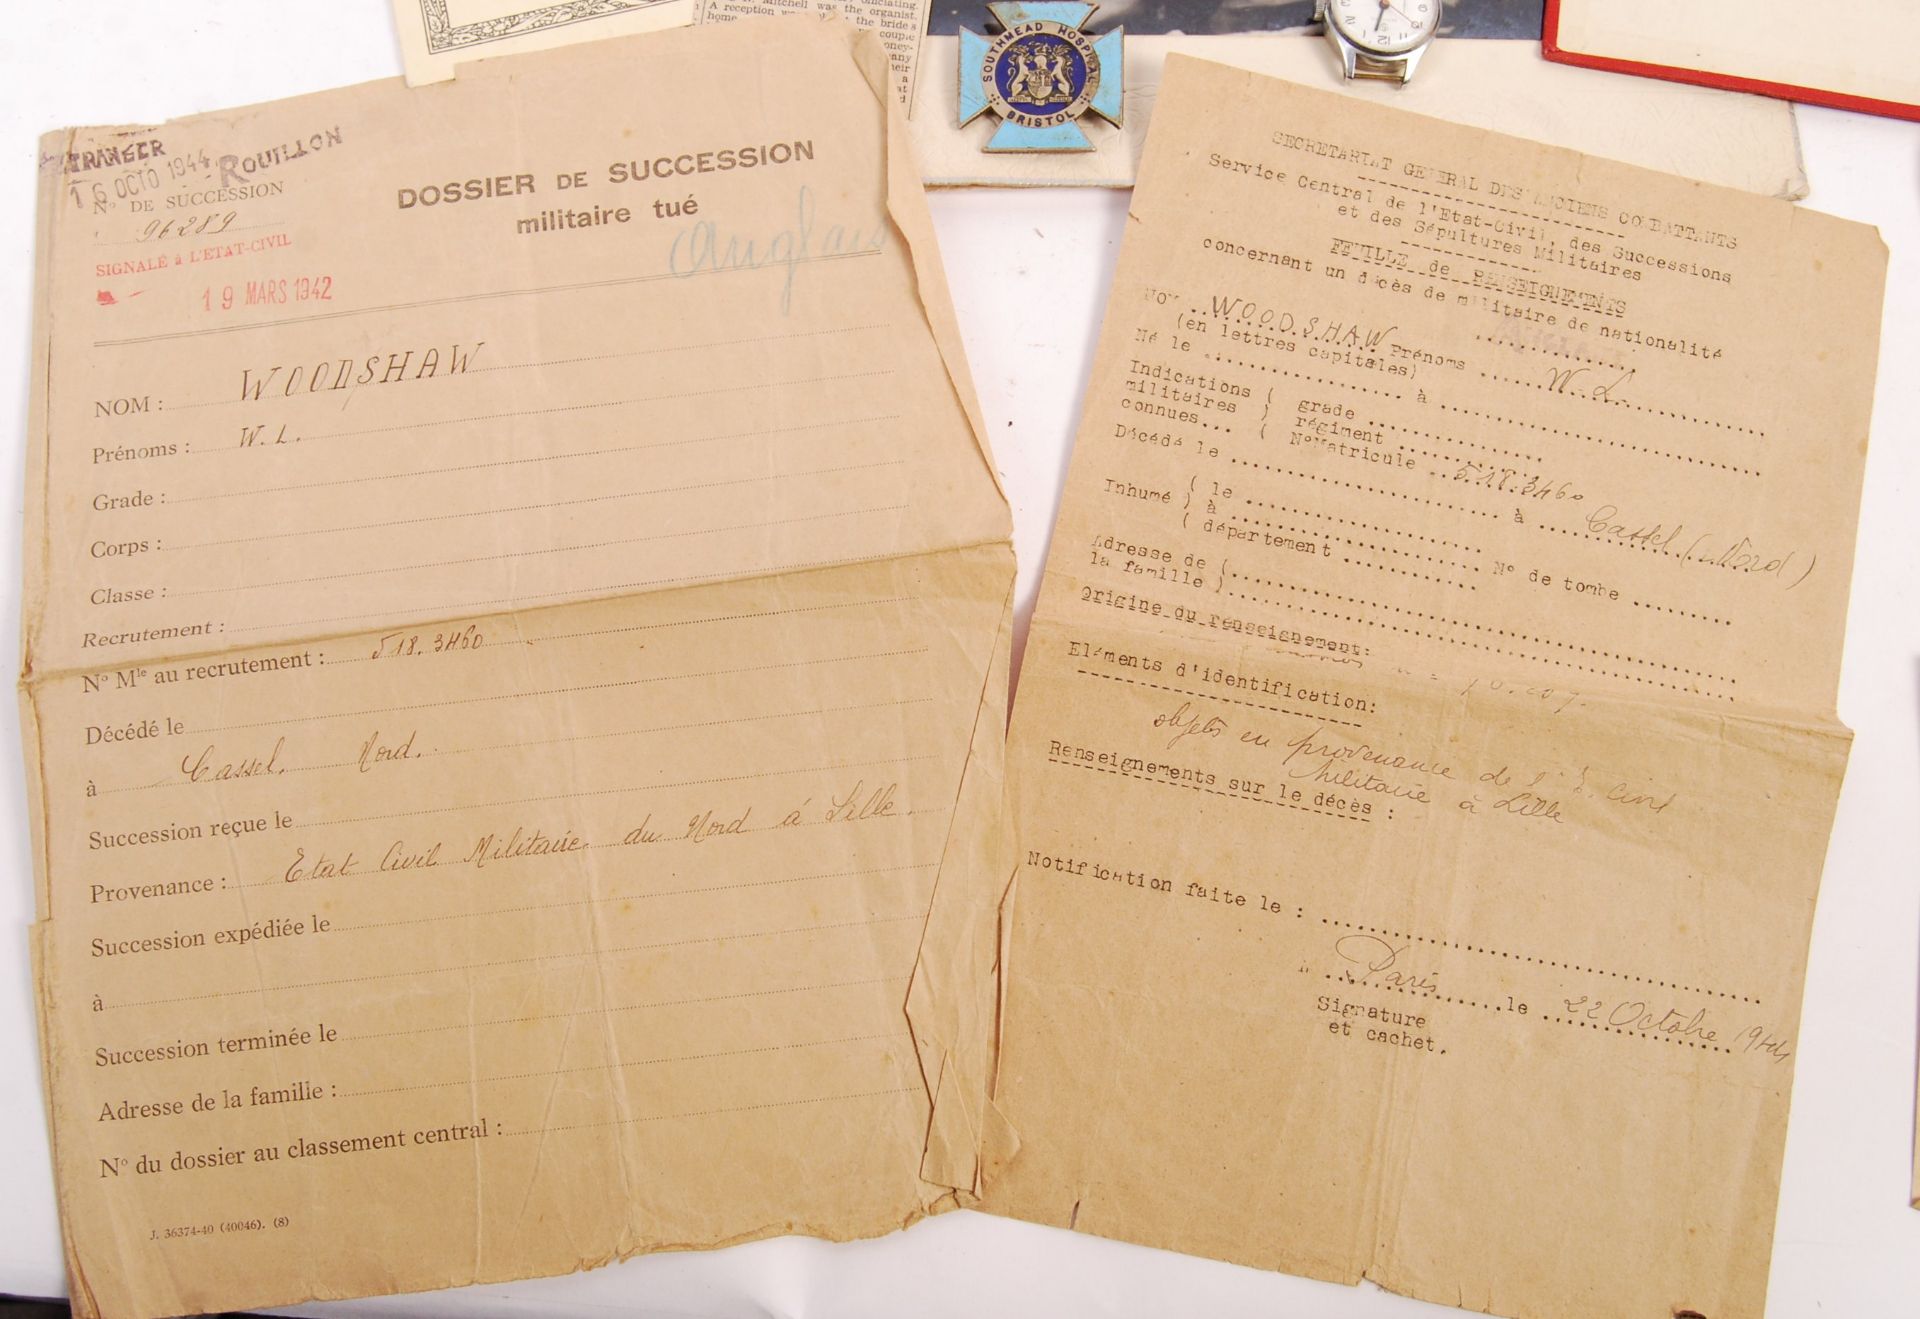 officiating.
Mitchell was the organist.
A reception
the bride's
home
couple
SOUTHMEAD HOSPITAL
BRISTOL
ETRANGER
16 OCTO 1944
ROUILLON
N° DE SUCCESSION
96289
SIGNALÉ à L'ETAT-CIVIL
19 MARS 1942
DOSSIER DE SUCCESSION
militaire tué
Anglais
NOM : WOODSHAW
Prénoms : W. L.
Grade :
Corps :
Classe :
Recrutement :
N° Mle au recrutement : 518.3460
Décédé le
à Cassel. Nord.
Succession reçue le
Provenance : Etat Civil Militaire du Nord à Lille.
Succession expédiée le
à
Succession terminée le
Adresse de la famille :
N° du dossier au classement central :
J. 36374-40 (40046). (8)
SECRETARIAT GENERAL DES ANCIENS COMBATTANTS
Service Central de l'Etat-Civil, des Successions
et des Sépultures Militaires
FEUILLE de RENSEIGNEMENTS
concernant un décès de militaire de nationalité
NOM WOODSHAW Prénoms W. L.
(en lettres capitales)
Né le à
Indications ( grade
militaires ) régiment
connues... ( N° Matricule 518.3460
Décédé le à Cassel (Nord)
( le
Inhumé ) à N° de tombe
( département
Adresse de (
la famille )
Origine du renseignement:
Eléments d'identification:
objets en provenance de l' E. Civil
Militaire à Lille
Renseignements sur le décès :
Notification faite le :
Paris le 22 Octobre 1944
Signature
et cachet.